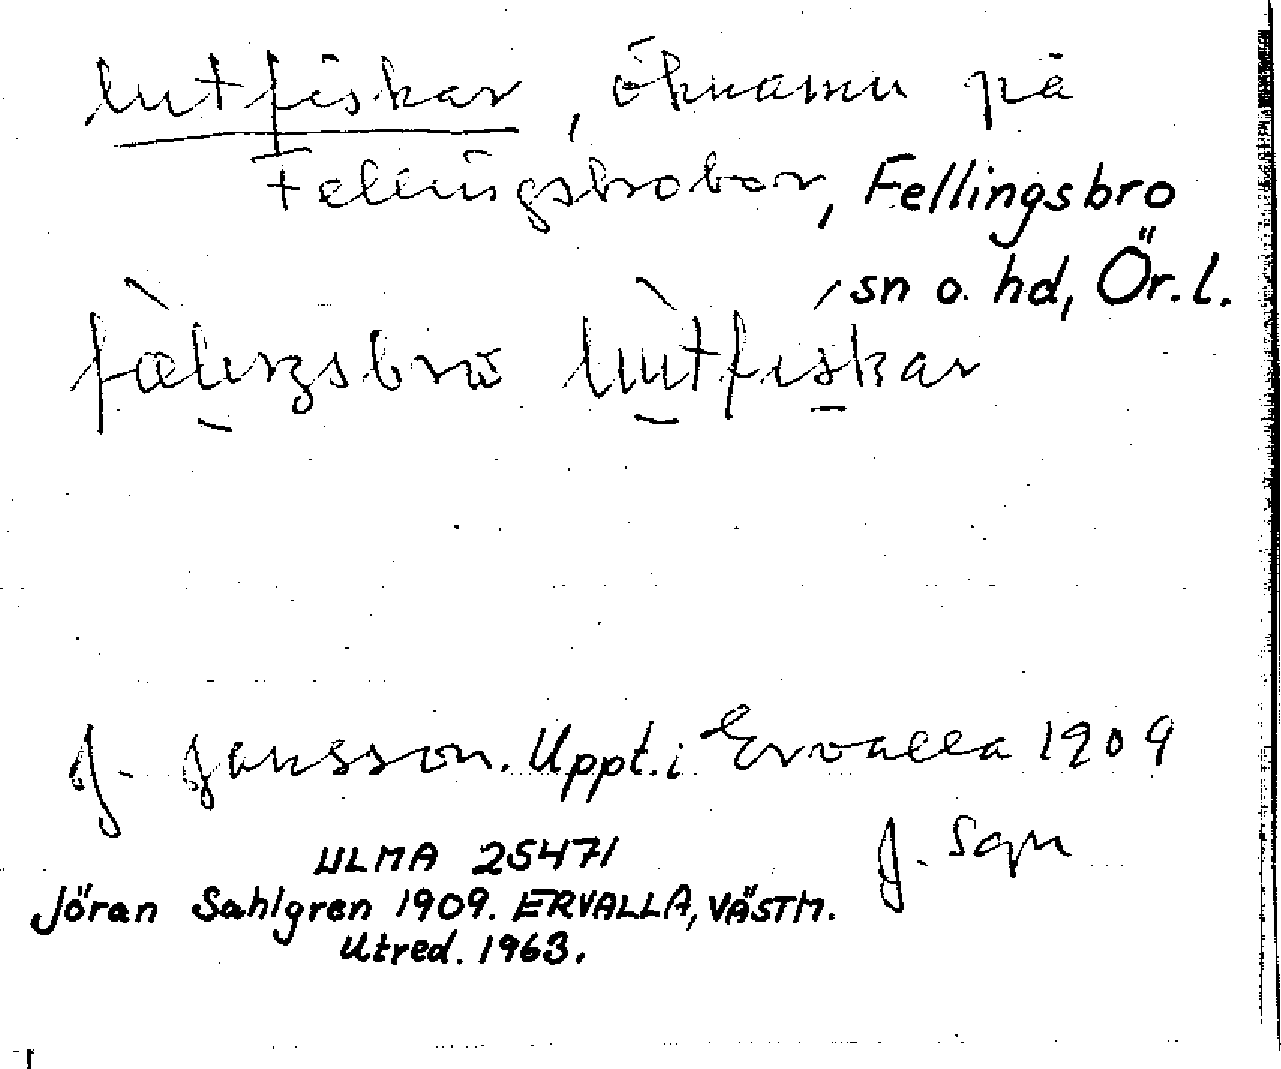 lutfiskar, öknamn på
Fellingsbrobor, Fellingsbro
sn o. hd, Ör. l.
fæliŋsbro lutfiskar
J. Jansson. Uppt. i Ervalla 1909
J. Sgn
ULMA 25471
Jöran Sahlgren 1909. ERVALLA, VÄSTM.
Utred. 1963.